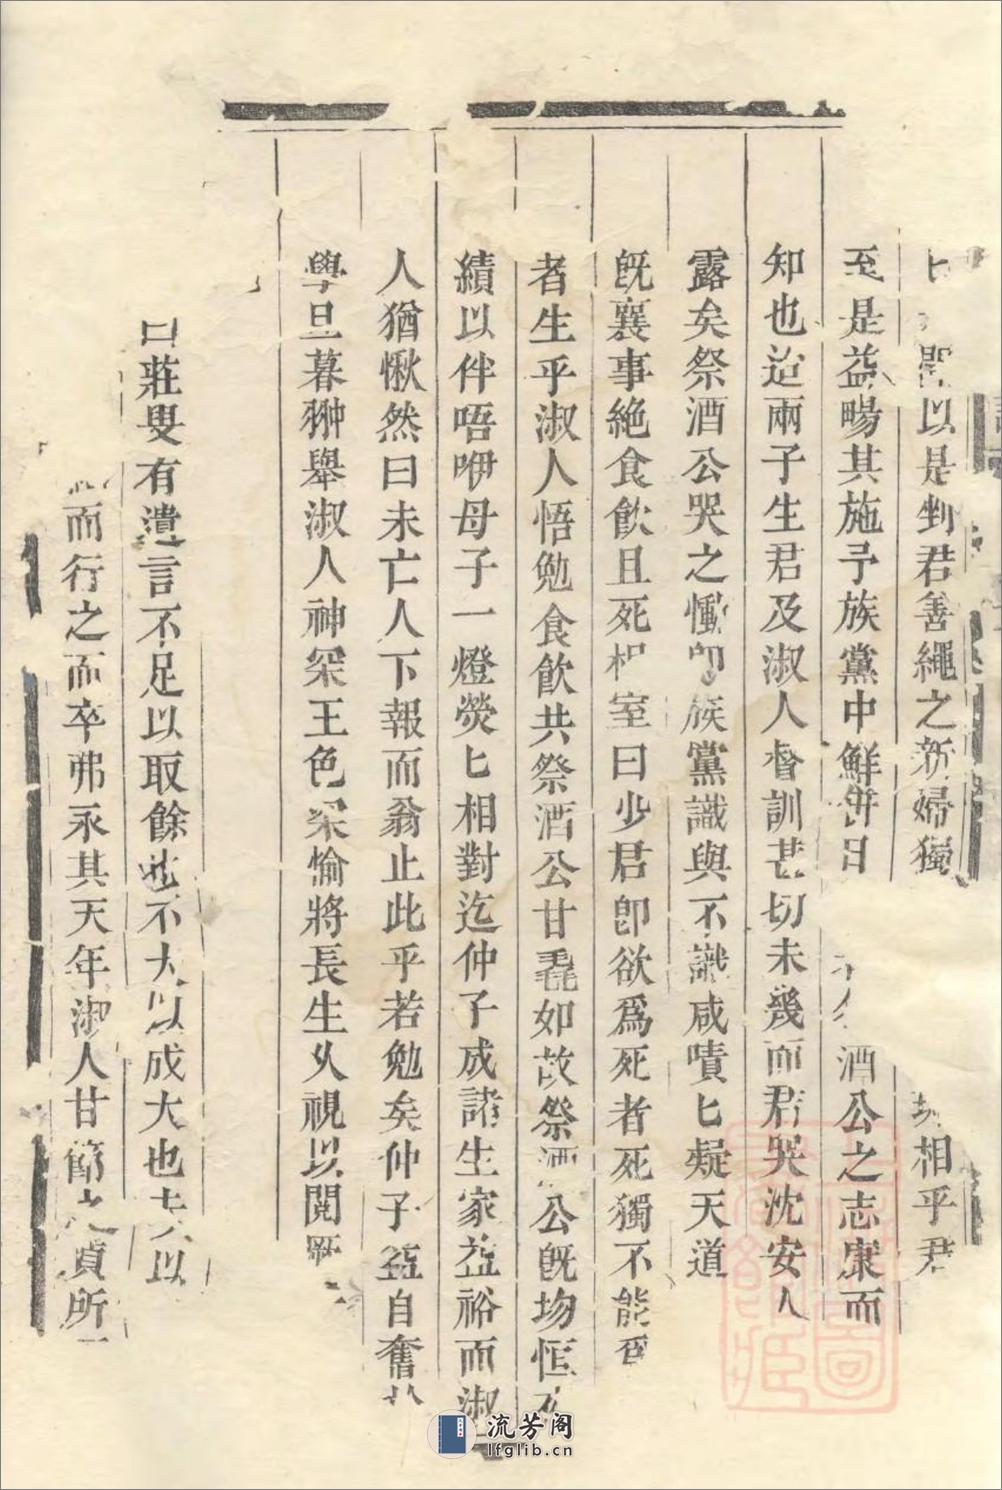 以是剉君善繩之新婦獨相乎君
至是益暢其施予族黨中鮮餅日酒公之志康而
知也迨兩子生君及淑人督訓甚切未幾而君哭沈安人
露矣祭酒公哭之慟即族黨識與不識咸嘖匕疑天道
旣襄事絶食飮且死相室曰少君卽欲爲死者死獨不能爲
者生乎淑人悟勉食飮共祭酒公甘毳如故祭酒公旣坳恒
績以伴唔咿母子一燈熒匕相對迄仲子成諸生家益裕而淑
人猶愀然曰未亡人下報而翁止此乎若勉矣仲子益自奮
學旦暮翀舉淑人神冞王色冞愉將長生久視以閱
曰莊叟有遺言不足以取餘也不大以成大也夫以
而行之而卒弗永其天年淑人甘節之貞所
流芳阁
lfglib.cn